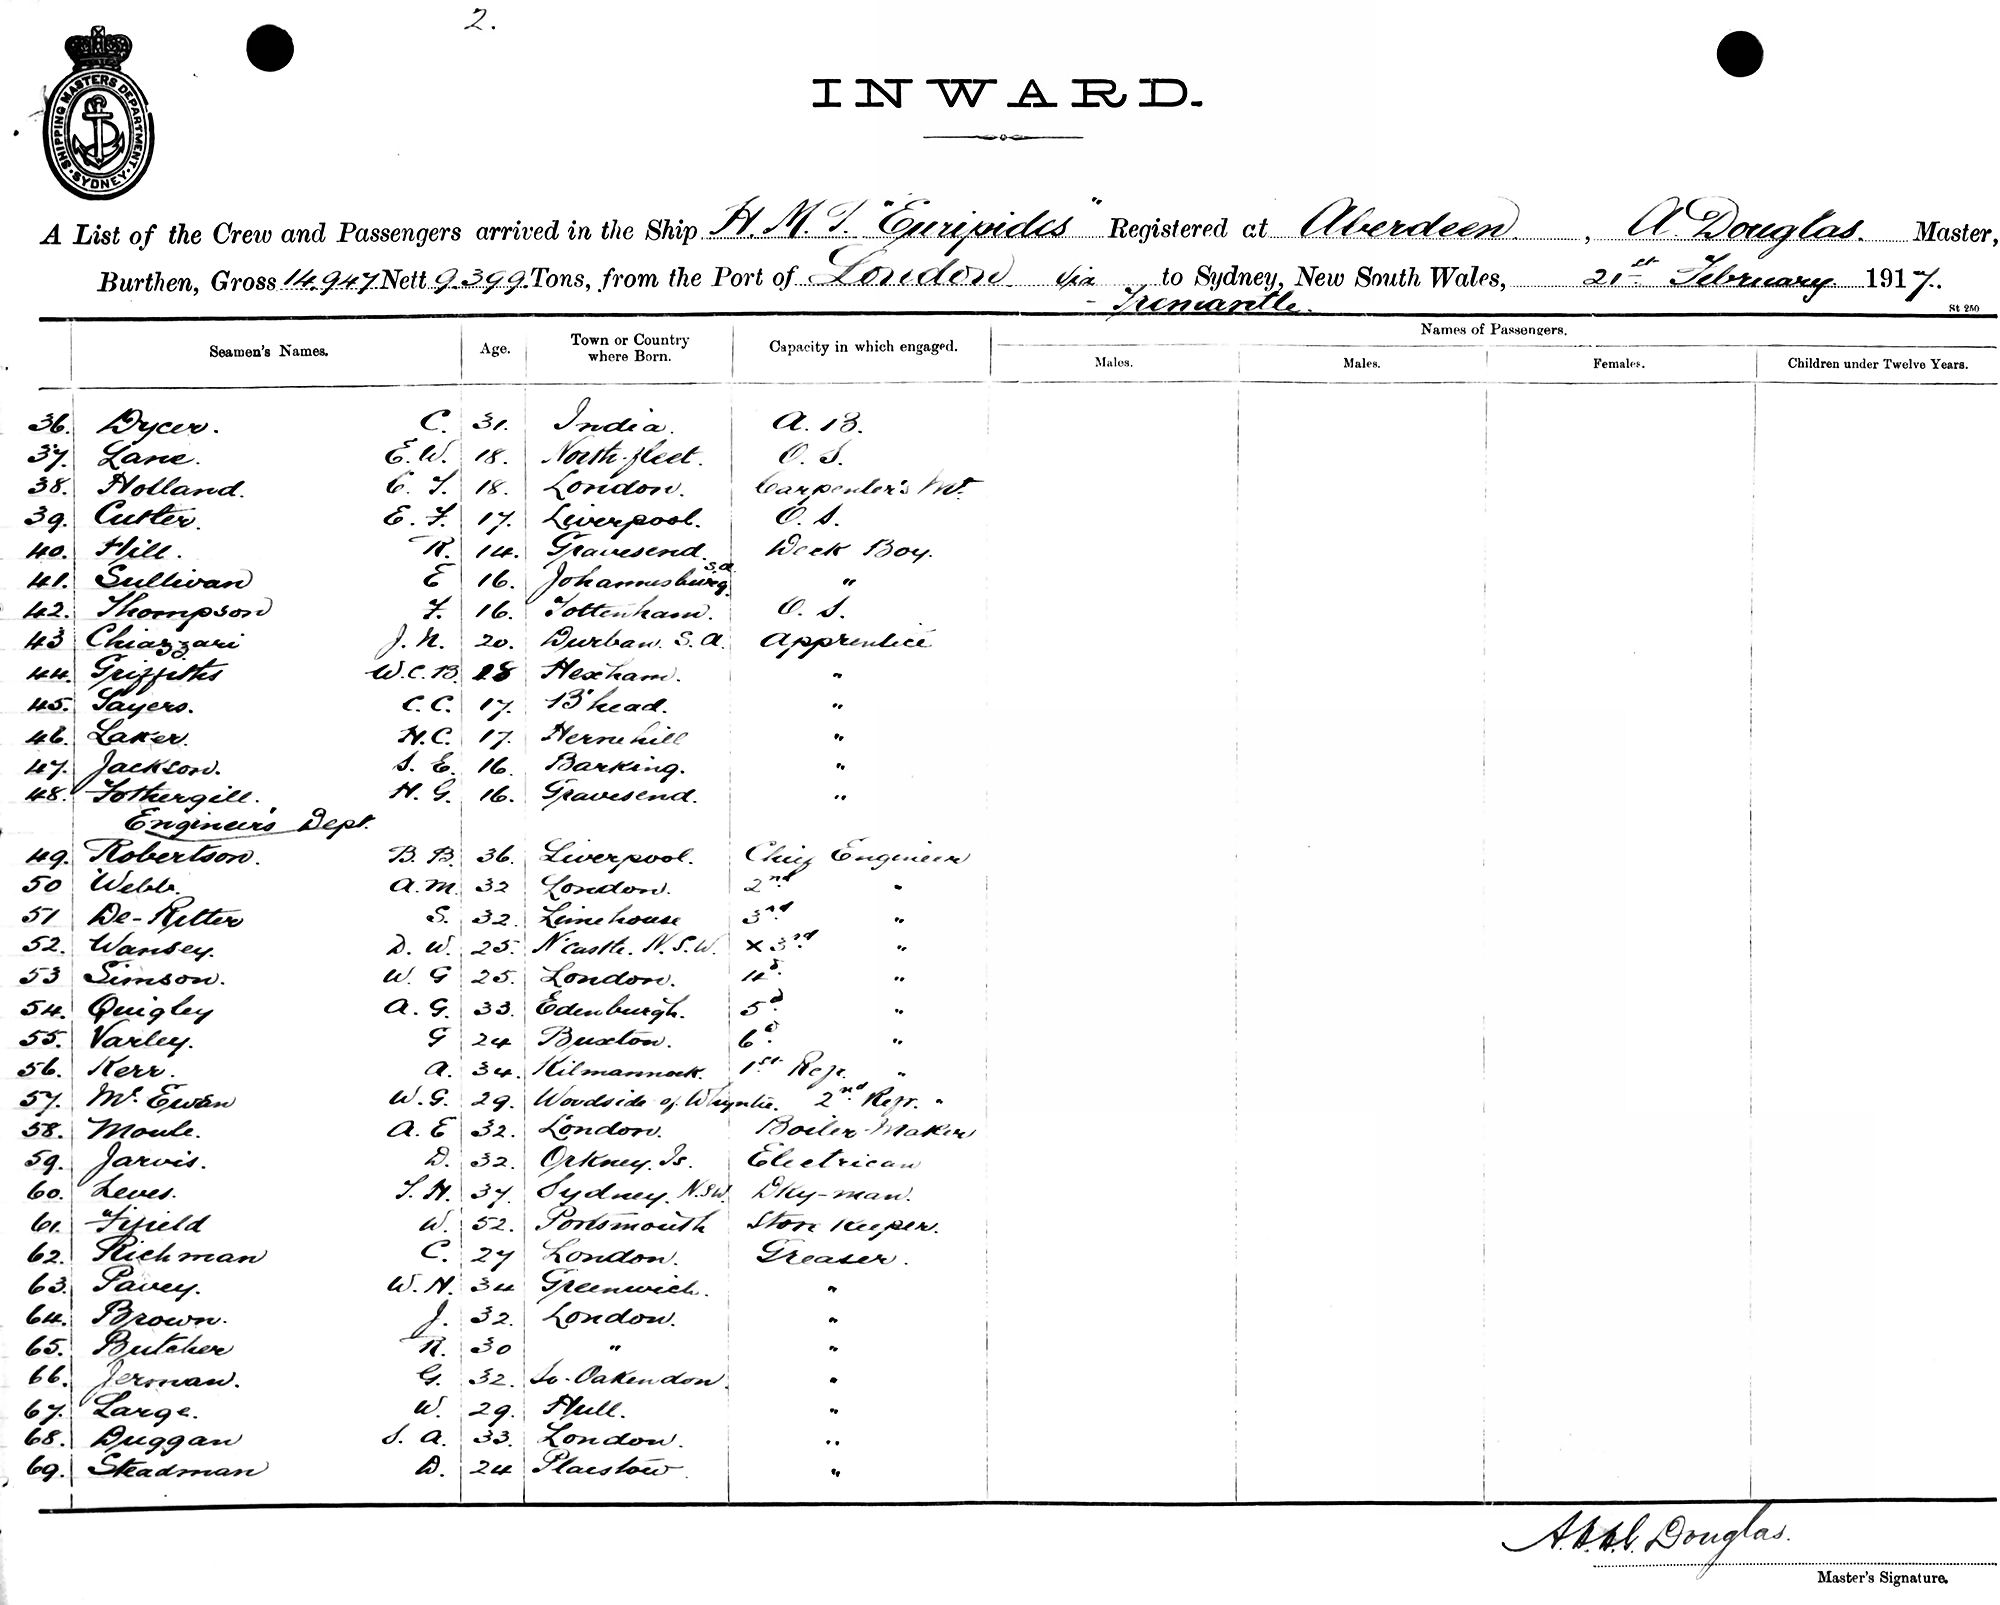 2.
SHIPPING MASTERS DEPARTMENT
SYDNEY
INWARD.
A List of the Crew and Passengers arrived in the Ship H. M. T. "Euripides" Registered at Aberdeen, A. Douglas. Master,
Burthen, Gross 14.947 Nett 9.399 Tons, from the Port of London via to Sydney, New South Wales, 21st February 1917.
Fremantle.
St 250
Seamen's Names. Age. Town or Country where Born. Capacity in which engaged. Names of Passengers.
Males. Males. Females. Children under Twelve Years.
36. Dycer. C. 31. India. A. B.
37. Lane. E. W. 18. North-fleet. O. S.
38. Holland. C. T. 18. London. Carpenter's Mt.
39. Cutter. E. F. 17. Liverpool. O. S.
40. Hill. R. 14. Gravesend. Deck Boy.
41. Sullivan E 16. Johannesburg. S.A. "
42. Thompson F. 16. Tottenham. O. S.
43 Chiazzari J. N. 20. Durban. S. A. Apprentice
44. Griffiths W. C. B. 18 Hexham. "
45. Sayers. C. C. 17. B'head. "
46. Laker. H. C. 17. Hernehill "
47. Jackson. S. E. 16. Barking. "
48. Fothergill. H. G. 16. Gravesend. "
Engineer's Dept.
49. Robertson. B. B. 36. Liverpool. Chief Engineer
50 Webb. A. M. 32 London. 2nd "
51 De-Ritter S. 32. Limehouse 3rd "
52. Wansey. D. W. 25. N'castle. N. S. W. x 3rd "
53 Simson. W. G 25. London. 4 "
54. Quigley A. G. 33. Edenburgh. 5 "
55. Varley. G 24 Buxton. 6 "
56. Kerr. A. 34. Kilmannock. 1st Refr. "
57. Mc Ewan W. G. 29. Woodside of 2nd Refr. "
58. Moule. A. E 32. London. Boiler-Maker
59. Jarvis. D. 32. Orkney. Is. Electrican
60. Leves. T. H. 37. Sydney. N.S.W. Dky-man.
61. Fifield W. 52. Portsmouth Store Keeper.
62. Richman C. 27 London. Greaser.
63. Pavey. W. H. 34 Greenwich. "
64. Brown. J. 32. London. "
65. Butcher R. 30 " "
66. Jerman. G. 32. So-Oakendon. "
67. Large. W. 29. Hull. "
68. Duggan S. A. 33. London. "
69. Steadman D. 24 Plaistow "
Douglas.
Master's Signature.